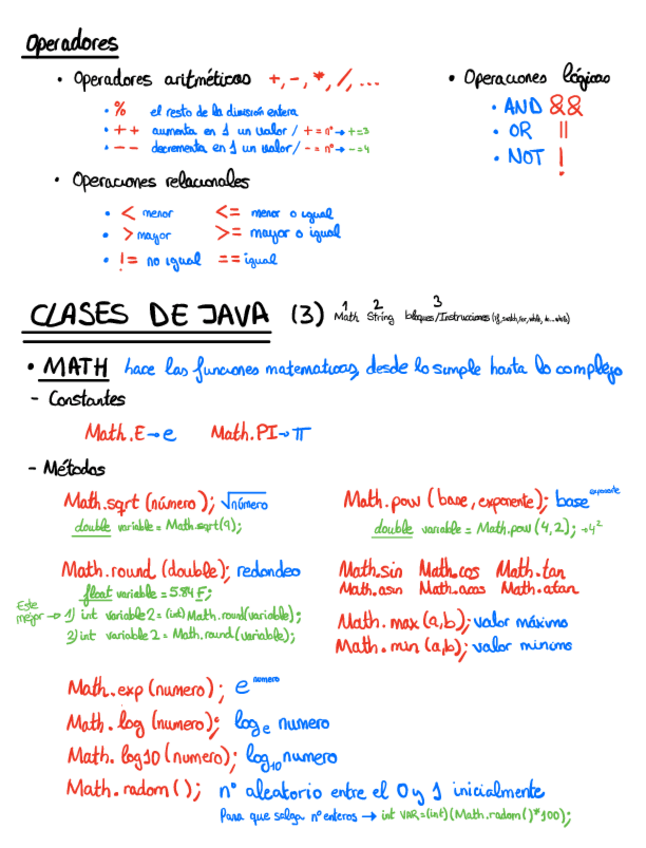 Operadores
• Operadores aritméticos +, -, *, /, ...
• % el resto de la división entera
• ++ aumenta en 1 un valor / += nº → +=3
• -- decrementa en 1 un valor / -= nº → -=4
• Operaciones lógicas
• AND &&
• OR ||
• NOT !
• Operaciones relacionales
• < menor <= menor o igual
• > mayor >= mayor o igual
• != no igual == igual
CLASES DE JAVA (3) 1 Math 2 String 3 bloques/Instrucciones (if, switch, for, while, do...while)
• MATH hace las funciones matematicas, desde lo simple hasta lo complejo
- Constantes
Math.E → e Math.PI → π
- Métodos
Math.sqrt (número); √número
double variable = Math.sqrt(9);
Math.pow (base, exponente); base^exponente
double variable = Math.pow(4,2); → 4²
Math.round (double); redondeo
float variable = 5.84F;
Este mejor → 1) int variable2 = (int) Math.round(variable);
2) int variable 2 = Math.round(variable);
Math.sin Math.cos Math.tan
Math.asin Math.acos Math.atan
Math.max (a,b); valor máximo
Math.min (a,b); valor minimo
Math.exp (numero); e^numero
Math.log (numero); logₑ numero
Math.log10 (numero); log₁₀ numero
Math.radom (); nº aleatorio entre el 0 y 1 inicialmente
Para que salga nº enteros → int VAR=(int)(Math.radom()*100);